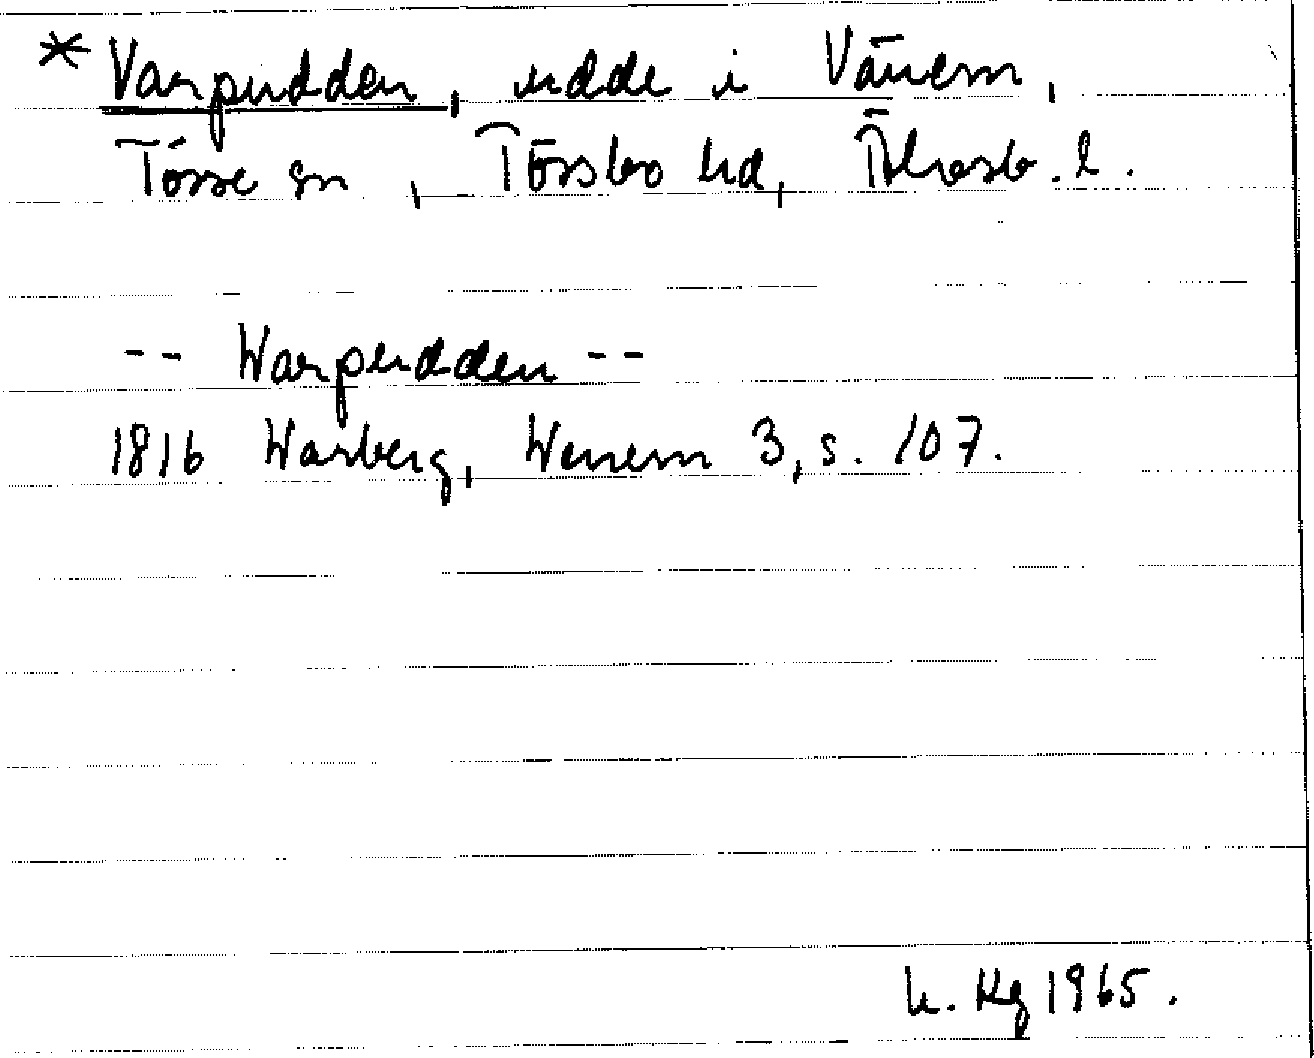 * Varpudden, udde i Vänern,
Tösse sn, Tössbo hd, Älvsb. l.
-- Warpudden --
1816 Warberg, Wenern 3, s. 107.
1965.